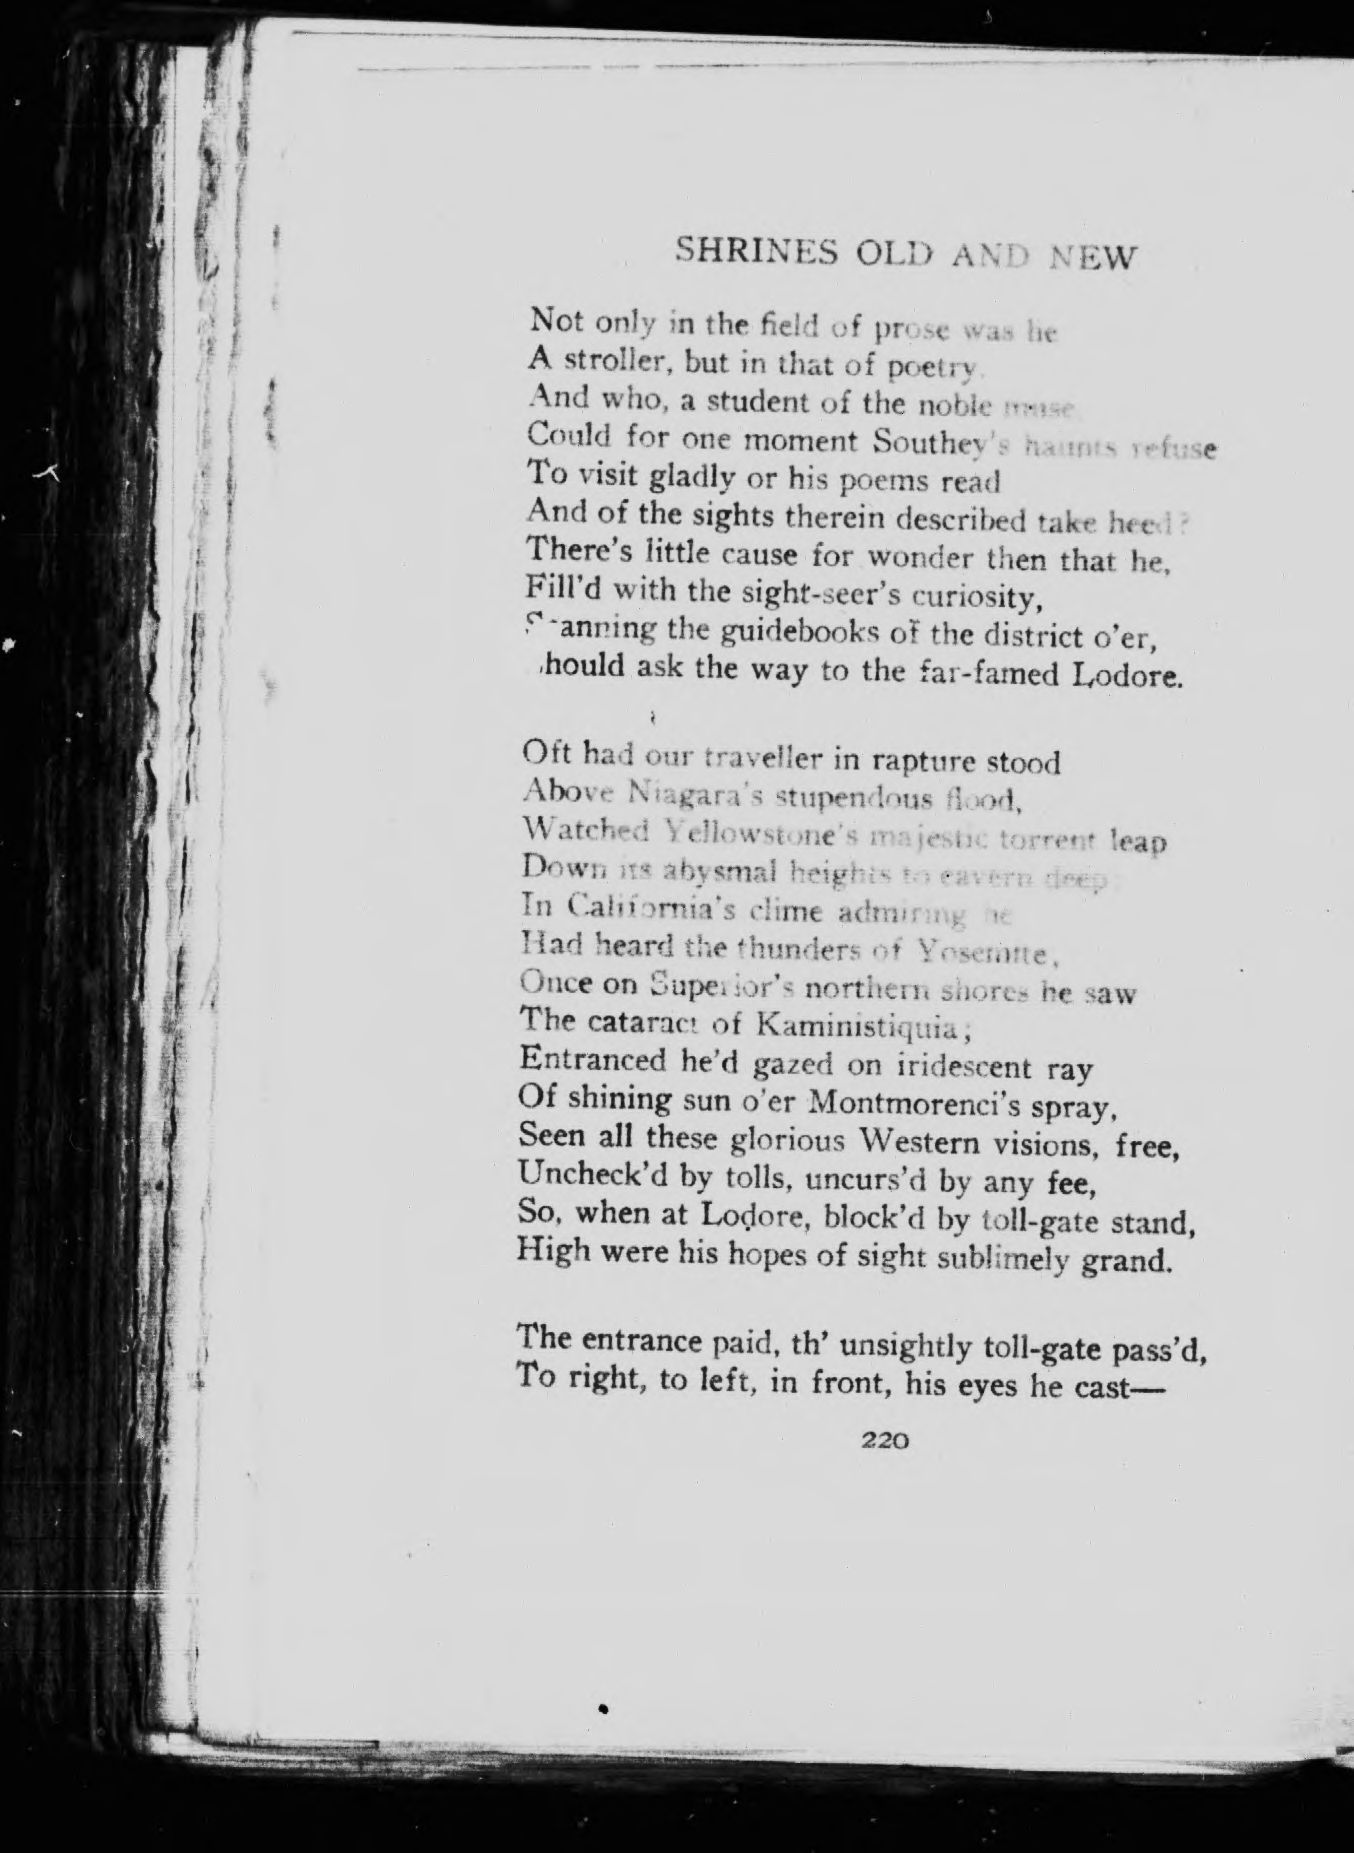 SHRINES OLD AND NEW
Not only in the field of prose was he
A stroller, but in that of poetry.
And who, a student of the noble muse
Could for one moment Southey's haunts refuse
To visit gladly or his poems read
And of the sights therein described take heed?
There's little cause for wonder then that he,
Fill'd with the sight-seer's curiosity,
the guidebooks of the district o'er,
hould ask the way to the far-famed Lodore.
Oft had our traveller in rapture stood
Above Niagara's stupendous flood,
Watched Yellowstone's majestic torrent leap
Down its abysmal heights to cavern deep;
In California's clime admiring he
Had heard the thunders of Yosemite,
Once on Superior's northern shores he saw
The cataract of Kaministiquia;
Entranced he'd gazed on iridescent ray
Of shining sun o'er Montmorenci's spray,
Seen all these glorious Western visions, free,
Uncheck'd by tolls, uncurs'd by any fee,
So, when at Lodore, block'd by toll-gate stand,
High were his hopes of sight sublimely grand.
The entrance paid, th' unsightly toll-gate pass'd,
To right, to left, in front, his eyes he cast—
220